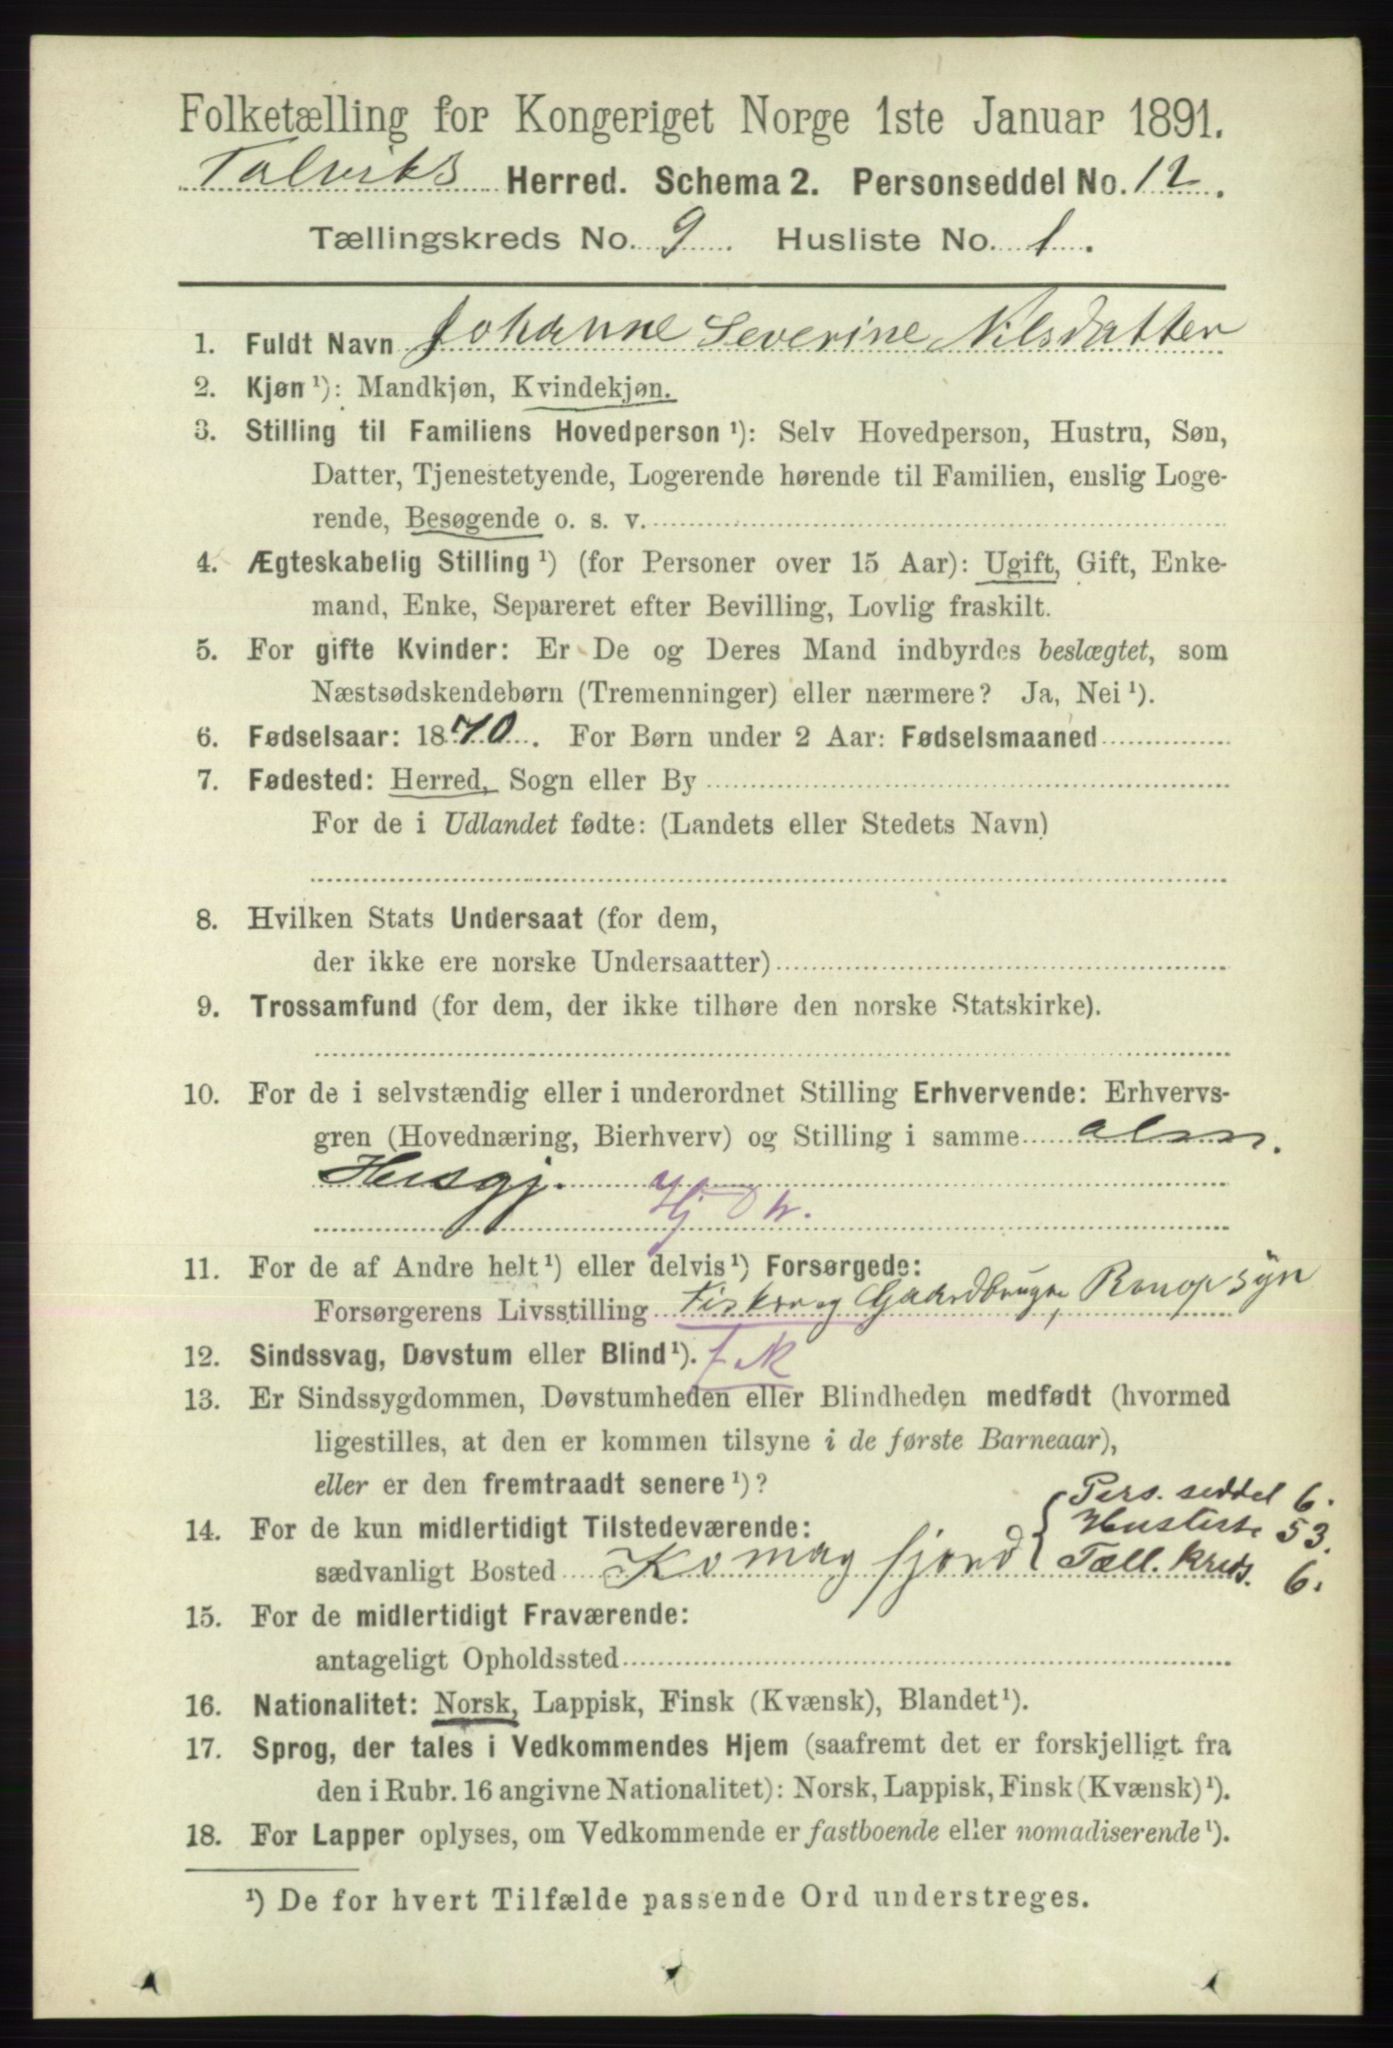 Folketælling for Kongeriget Norge 1ste Januar 1891.
Talviks Herred. Schema 2. Personseddel No. 12.
Tællingskreds No. 9. Husliste No. 1.
1. Fuldt Navn Johanne Severine Nilsdatter
2. Kjøn ¹): Mandkjøn, Kvindekjøn.
3. Stilling til Familiens Hovedperson ¹): Selv Hovedperson, Hustru, Søn,
Datter, Tjenestetyende, Logerende hørende til Familien, enslig Loge-
rende, Besøgende o. s. v.
4. Ægteskabelig Stilling ¹) (for Personer over 15 Aar): Ugift, Gift, Enke-
mand, Enke, Separeret efter Bevilling, Lovlig fraskilt.
5. For gifte Kvinder: Er De og Deres Mand indbyrdes beslægtet, som
Næstsødskendebørn (Tremenninger) eller nærmere? Ja, Nei ¹).
6. Fødselsaar: 1870. For Børn under 2 Aar: Fødselsmaaned
7. Fødested: Herred, Sogn eller By
For de i Udlandet fødte: (Landets eller Stedets Navn)
8. Hvilken Stats Undersaat (for dem,
der ikke ere norske Undersaatter)
9. Trossamfund (for dem, der ikke tilhøre den norske Statskirke).
10. For de i selvstændig eller i underordnet Stilling Erhvervende: Erhvervs-
gren (Hovednæring, Bierhverv) og Stilling i samme alm.
Husgj.
11. For de af Andre helt ¹) eller delvis ¹) Forsørgede:
Forsørgerens Livsstilling Fisker og Gaardbruger,
12. Sindssvag, Døvstum eller Blind ¹).
13. Er Sindssygdommen, Døvstumheden eller Blindheden medfødt (hvormed
ligestilles, at den er kommen tilsyne i de første Barneaar),
eller er den fremtraadt senere ¹)?
Pers. seddel 6.
14. For de kun midlertidigt Tilstedeværende: Husliste 53.
sædvanligt Bosted Komagfjord { Tæll. kreds. 6.
15. For de midlertidigt Fraværende:
antageligt Opholdssted
16. Nationalitet: Norsk, Lappisk, Finsk (Kvænsk), Blandet ¹).
17. Sprog, der tales i Vedkommendes Hjem (saafremt det er forskjelligt fra
den i Rubr. 16 angivne Nationalitet): Norsk, Lappisk, Finsk (Kvænsk) ¹).
18. For Lapper oplyses, om Vedkommende er fastboende eller nomadiserende ¹).
¹) De for hvert Tilfælde passende Ord understreges.